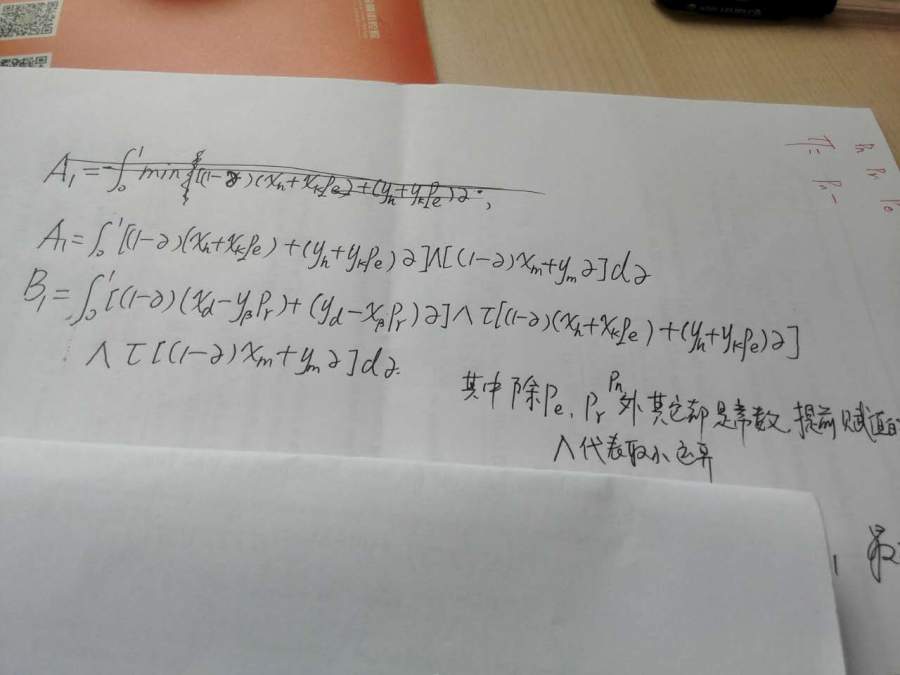 A₁=∫₀¹min{[(1-∂)(xₙ+xₖρₑ)+(yₙ+yₖρₑ)∂,
A₁=∫₀¹[(1-∂)(xₙ+xₖρₑ)+(yₙ+yₖρₑ)∂]∧[(1-∂)xₘ+yₘ∂]d∂
B₁=∫₀¹[(1-∂)(x_d-y_βρᵣ)+(y_d-x_βρᵣ)∂]∧τ[(1-∂)(xₙ+xₖρₑ)+(yₙ+yₖρₑ)∂]
∧τ[(1-∂)xₘ+yₘ∂]d∂.
其中除ρₑ、ρᵣ ρₙ外其它都是常数,提前赋值的
∧代表取小运算